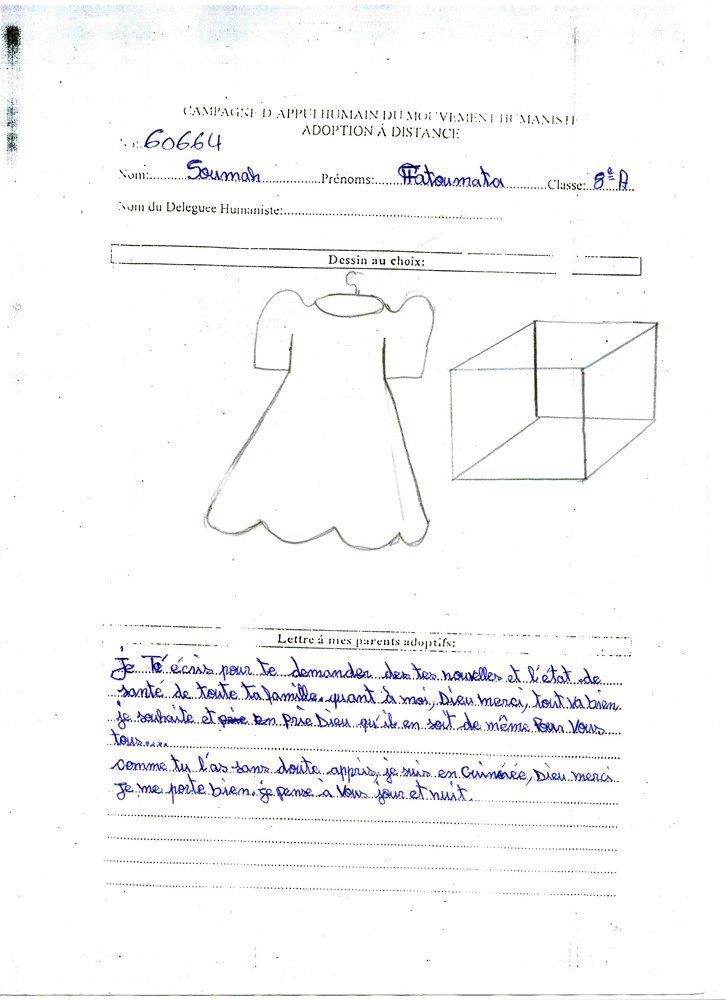 CAMPAGNE D'APPUI HUMAIN DU MOUVEMENT HUMANISTE
ADOPTION À DISTANCE
N°:60664
Nom:......Soumah......Prénoms:......Fatoumata......Classe:..8e A
Nom du Deleguee Humaniste:......
Dessin au choix:
Lettre à mes parents adoptifs:
Je Té écris pour te demander des tes nouvelles et l'état de
santé de toute ta famille. quant à moi, Dieu merci, tout va bien.
je souhaite et prie en prie Dieu qu'il en soit de même Pour Vous
tous....
comme tu l'as sans doute appris, je suis en Guinée, Dieu merci
Je me porte bien. je pense à Vous jour et nuit.